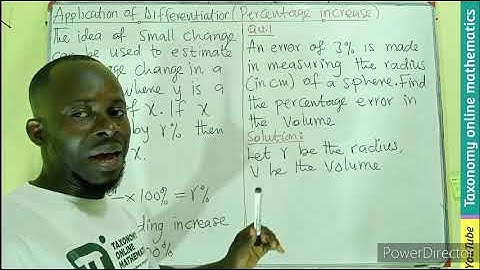 Application of Differentiation (Percentage increase)
The idea of Small change
can be used to estimate
change in a
where y is a
of x. If x
by r% then
x.
x 100% = r%
ding increase
00%
Qn:1
An error of 3% is made
in measuring the radius
(in cm) of a sphere. Find
the percentage error in
the Volume.
Solution:
Let r be the radius,
V be the Volume
TAXONOMY
ONLINE
MATHEMAT
Taxonomy online mathematics
YouTube
PowerDirector